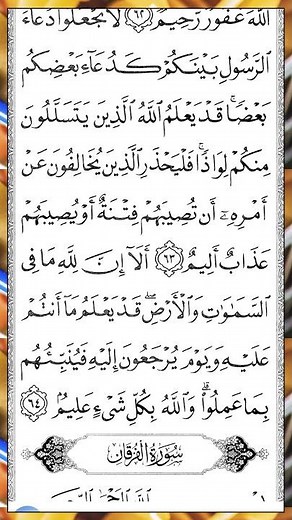 ٱللَّهَ غَفُورٌ رَّحِيمٌ ٦٢ لَّا تَجْعَلُوا۟ دُعَآءَ
ٱلرَّسُولِ بَيْنَكُمْ كَدُعَآءِ بَعْضِكُم
بَعْضًا ۚ قَدْ يَعْلَمُ ٱللَّهُ ٱلَّذِينَ يَتَسَلَّلُونَ
مِنكُمْ لِوَاذًا ۚ فَلْيَحْذَرِ ٱلَّذِينَ يُخَالِفُونَ عَنْ
أَمْرِهِۦٓ أَن تُصِيبَهُمْ فِتْنَةٌ أَوْ يُصِيبَهُمْ
عَذَابٌ أَلِيمٌ ٦٣ أَلَآ إِنَّ لِلَّهِ مَا فِى
ٱلسَّمَٰوَٰتِ وَٱلْأَرْضِ ۖ قَدْ يَعْلَمُ مَآ أَنتُمْ
عَلَيْهِ وَيَوْمَ يُرْجَعُونَ إِلَيْهِ فَيُنَبِّئُهُم
بِمَا عَمِلُوا۟ ۗ وَٱللَّهُ بِكُلِّ شَىْءٍ عَلِيمٌۢ ٦٤
سُورَةُ الْفُرْقَانِ